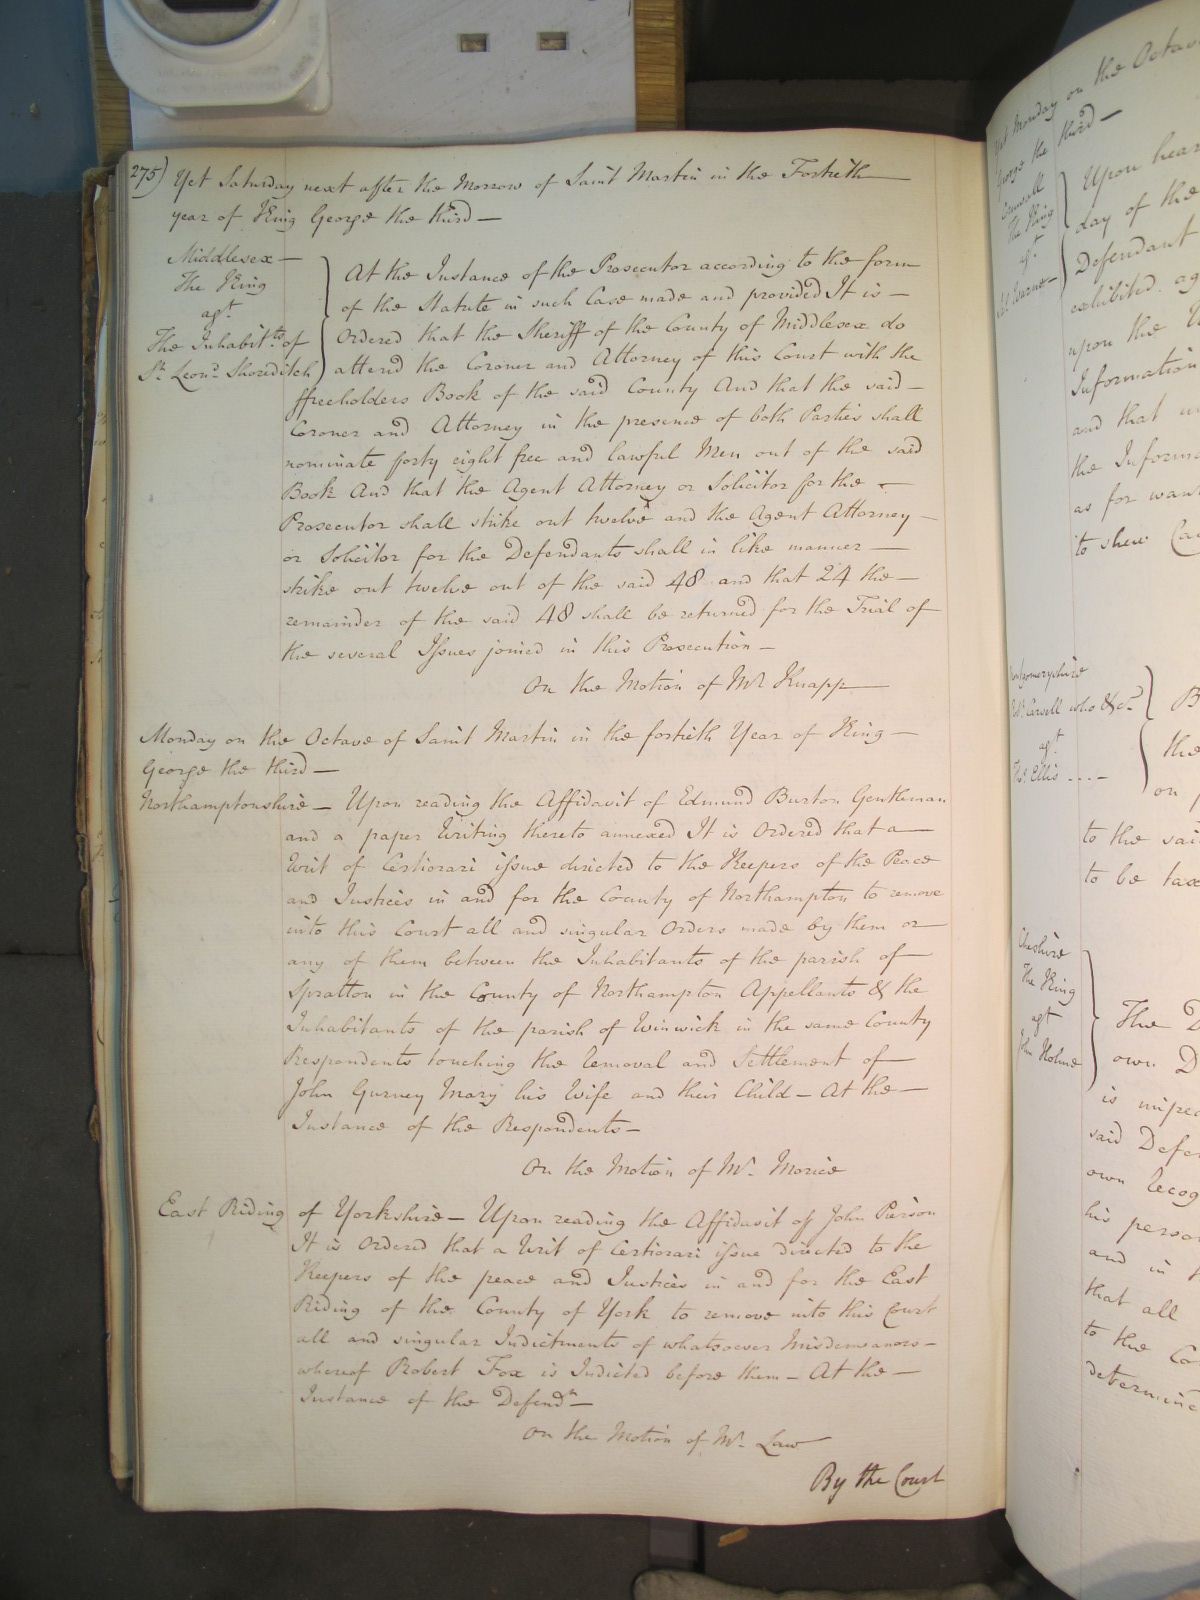 275) Yet Saturday next after the Morrow of Saint Martin in the Fortieth
year of King George the third —
Middlesex —
The King
agt.
The Inhabitts. of
St. Leond. Shoreditch
At the Instance of the Prosecutor according to the form
of the Statute in such Case made and provided It is —
Ordered that the Sheriff of the County of Middlesex do
attend the Coroner and Attorney of this Court with the
ffreeholders Book of the said County And that the said —
Coroner and Attorney in the presence of both Parties shall
nominate forty eight free and lawful Men out of the said
Book And that the Agent Attorney or Solicitor for the —
Prosecutor shall strike out twelve and the Agent Attorney —
or Solicitor for the Defendants shall in like manner —
strike out twelve out of the said 48 and that 24 the —
remainder of the said 48 shall be returned for the Trial of
the several Issues joined in this Prosecution —
On the Motion of Mr. Knapp —
Monday on the Octave of Saint Martin in the fortieth Year of King —
George the third —
Northamptonshire — Upon reading the Affidavit of Edmund Burton Gentleman
and a paper Writing thereto annexed It is Ordered that a —
Writ of Certiorari issue directed to the Keepers of the Peace
and Justices in and for the County of Northampton to remove
into this Court all and singular Orders made by them or —
any of them between the Inhabitants of the parish of —
Spratton in the County of Northampton Appellants & the
Inhabitants of the parish of Winwick in the same County
Respondents touching the Removal and Settlement of —
John Gurney Mary his Wife and their Child — At the —
Instance of the Respondents —
On the Motion of Mr. Morice
East Riding of Yorkshire — Upon reading the Affidavit of John Pierson
It is Ordered that a Writ of Certiorari issue directed to the
Keepers of the peace and Justices in and for the East
Riding of the County of York to remove into this Court
all and singular Indictments of whatsoever Misdemeanors —
whereof Robert Fox is Indicted before them — At the —
Instance of the Defendt. —
On the Motion of Mr. Law
By the Court
Yet Monday on the Octave
George the third —
Cornwall
The King
agt.
Upon hear
day of the
Defendant
exhibited ag
upon the
Information
and that
the Informa
as for want
to shew Ca
who &c.
agt.
Ellis
B
the
on
to the sai
to be tax
Cheshire
The King
agt
John Holme
The D
own D
is impe
said Defen
own Recog
his perso
and in
that all
to the Co
determine